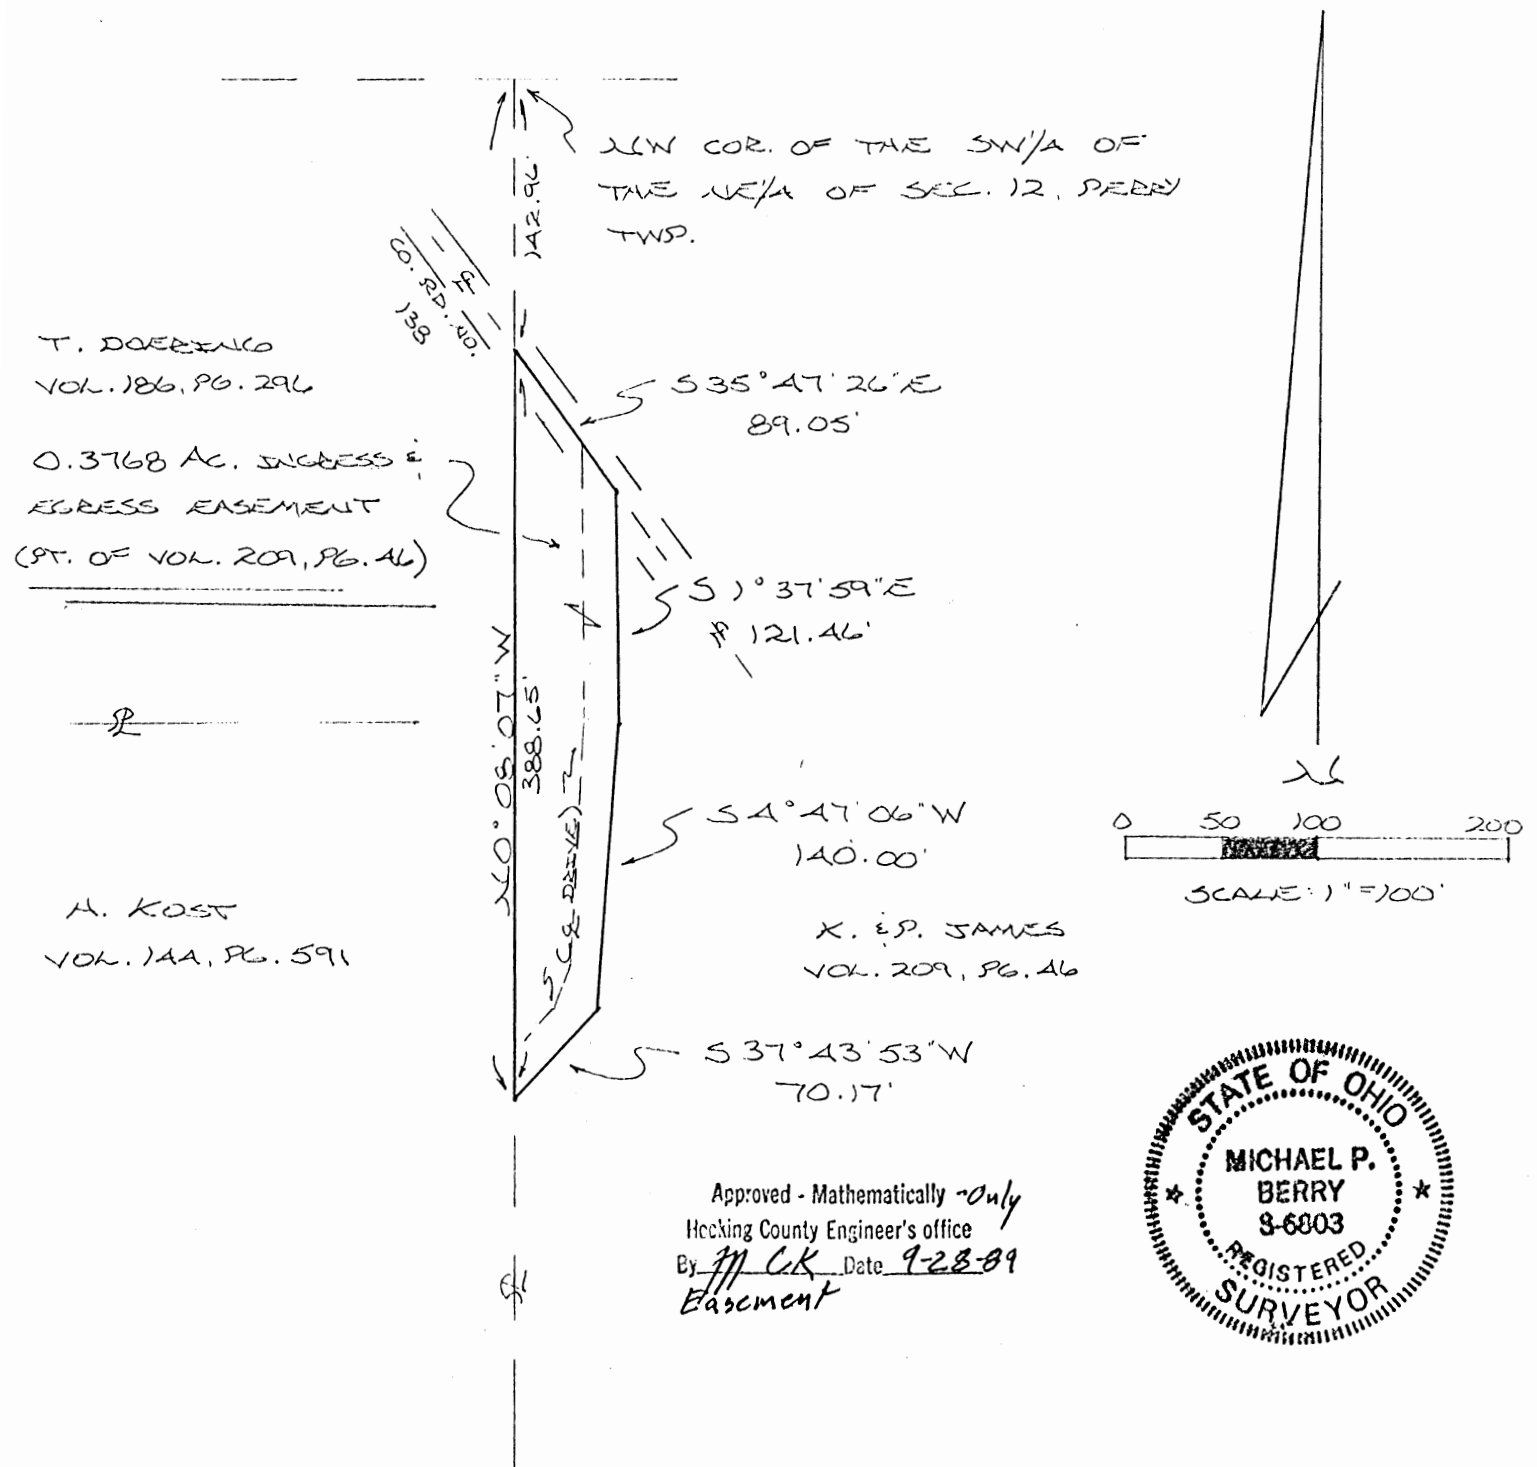 NW COR. OF THE SW1/4 OF
THE NE1/4 OF SEC. 12, PERRY
TWP.
142.96'
CO. RD. NO.
138
T. DOERING
VOL. 186, PG. 296
0.3768 AC. INGRESS &
EGRESS EASEMENT
(PT. OF VOL. 209, PG. 46)
S 35° 47' 26" E
89.05'
S 1° 37' 59" E
121.46'
N 0° 08' 07" W
388.65'
(℄ DRIVE)
S 4° 47' 06" W
140.00'
H. KOST
VOL. 144, PG. 591
K. & P. JAMES
VOL. 209, PG. 46
S 37° 43' 53" W
70.17'
N
0 50 100 200
SCALE: 1" = 100'
Approved - Mathematically - Only
Hocking County Engineer's office
By M CK Date 9-28-89
Easement
STATE OF OHIO
MICHAEL P.
BERRY
S-6803
REGISTERED
SURVEYOR